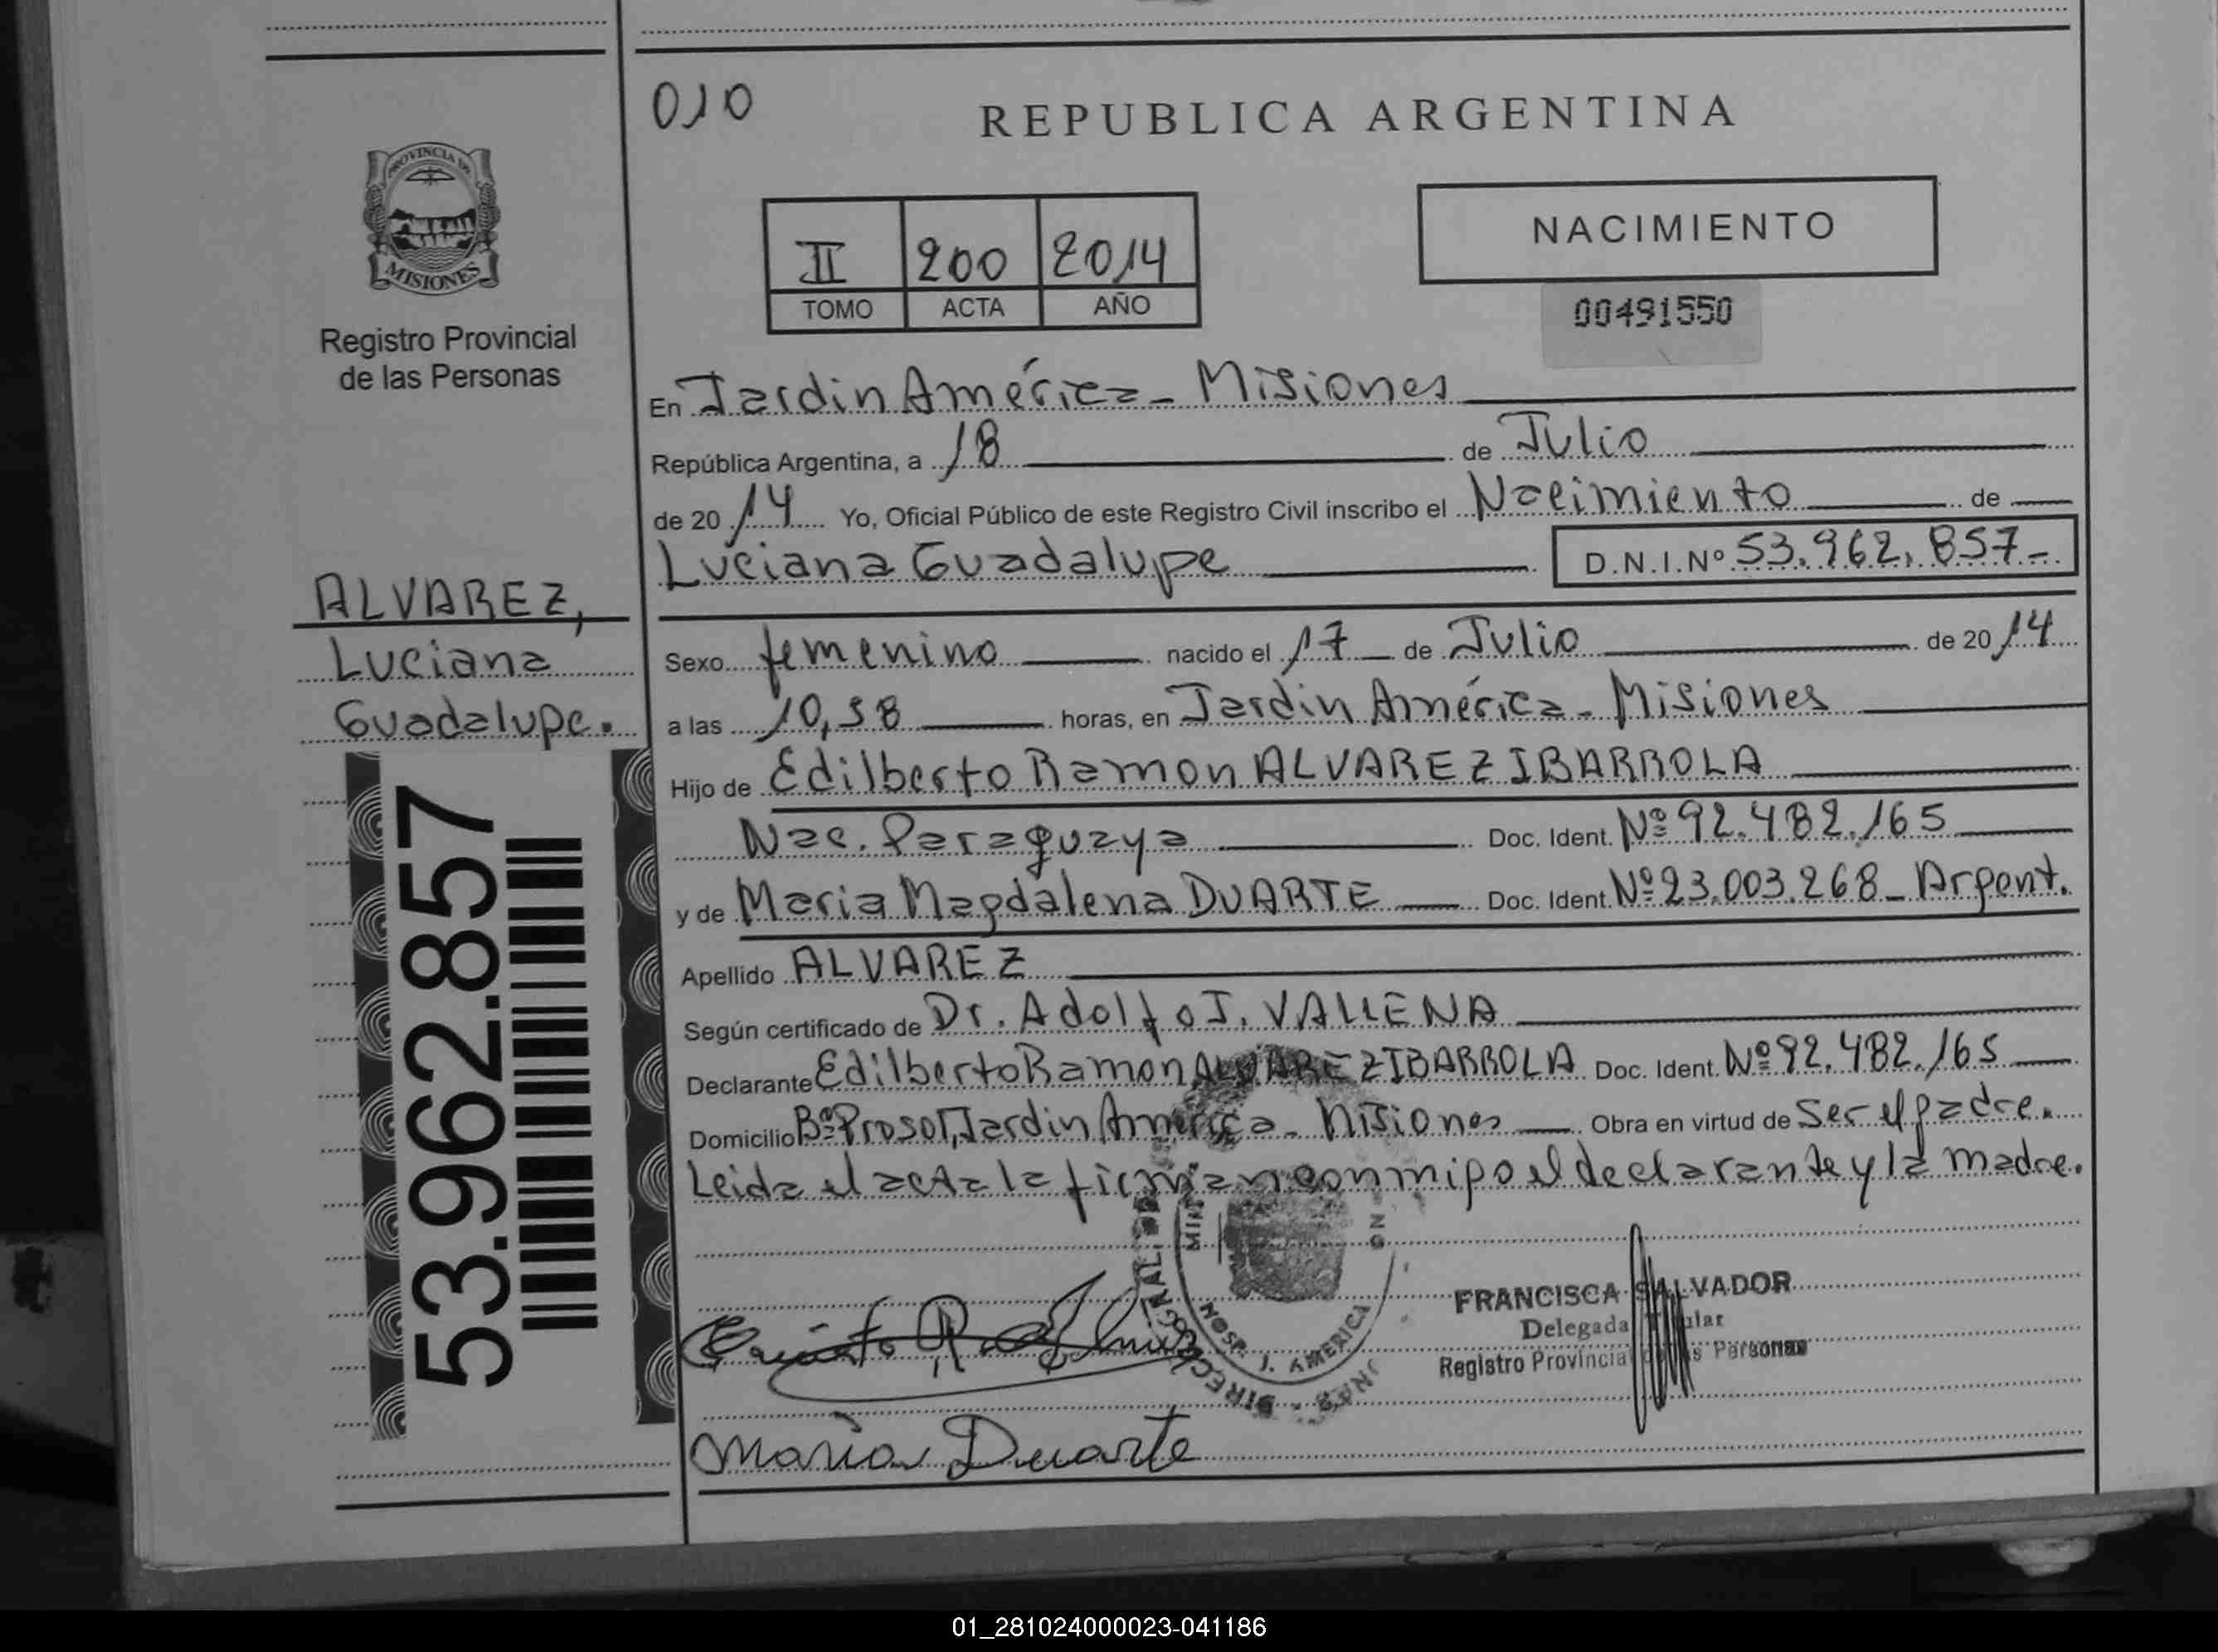 010
REPUBLICA ARGENTINA
PROVINCIA DE
MISIONES
Registro Provincial
de las Personas
II 200 2014
TOMO ACTA AÑO
NACIMIENTO
00491550
En Jardin América - Misiones
República Argentina, a 18 de Julio
de 2014 Yo, Oficial Público de este Registro Civil inscribo el Nacimiento de
Luciana Guadalupe D.N.I.Nº 53.962.857-
ALVAREZ,
Luciana
Guadalupe.
53.962.857
Sexo femenino nacido el 17 de Julio de 2014
a las 10,38 horas, en Jardin América - Misiones
Hijo de Edilberto Ramon ALVAREZ IBARROLA
Nac. Paraguaya Doc. Ident. Nº 92.482.165
y de Maria Magdalena DUARTE Doc. Ident. Nº 23.003.268 - Argent.
Apellido ALVAREZ
Según certificado de Dr. Adolfo J. VALLENA
Declarante Edilberto Ramon ALVAREZ IBARROLA Doc. Ident. Nº 92.482.165
Domicilio Bº Prosol, Jardin América - Misiones Obra en virtud de ser el padre.
Leida el acta la firman conmigo el declarante y la madre.
HOSP. J. AMERICA
FRANCISCA SALVADOR
Delegada Titular
Registro Provincial de las Personas
Maria Duarte
01_281024000023-041186